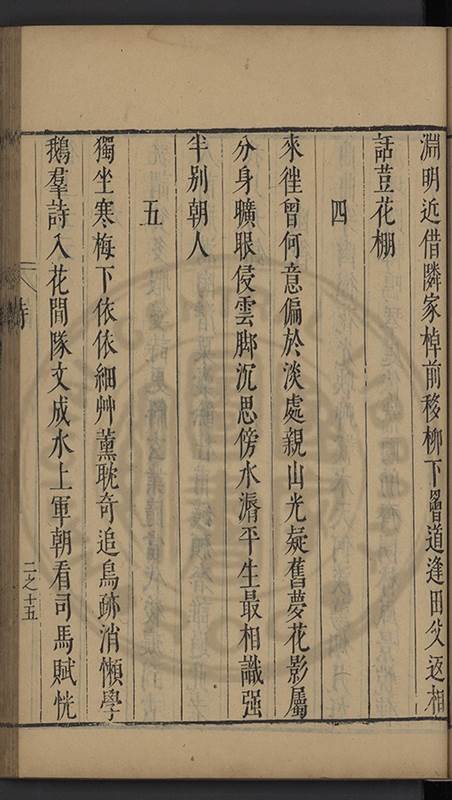 淵明近借隣家棹前移柳下罾道逢田父返相
話荳花棚
四
來徃曾何意偏於淡處親山光疑舊夢花影屬
分身曠眼侵雲脚沉思傍水漘平生最相識强
半别朝人
五
獨坐寒梅下依依細艸薰耽奇追鳥跡消懶學
鵝羣詩入花間隊文成水上軍朝看司馬賦恍
詩
二之十五